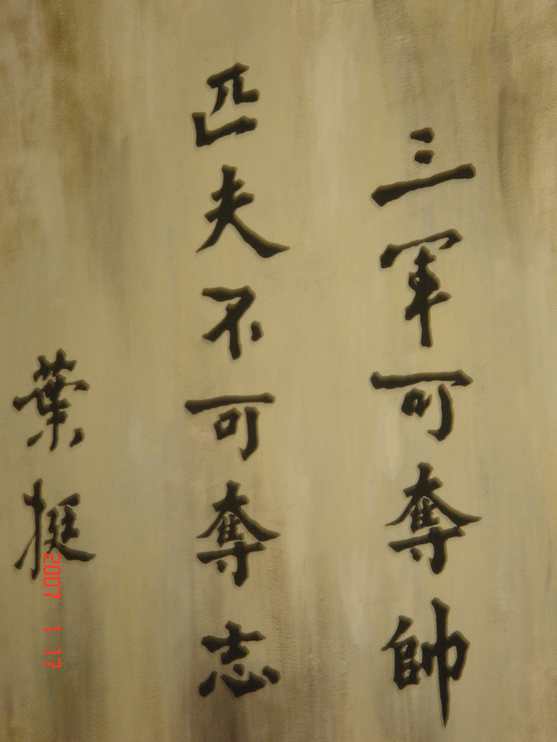 三軍可奪帥
匹夫不可奪志
葉挺
2007 1 17